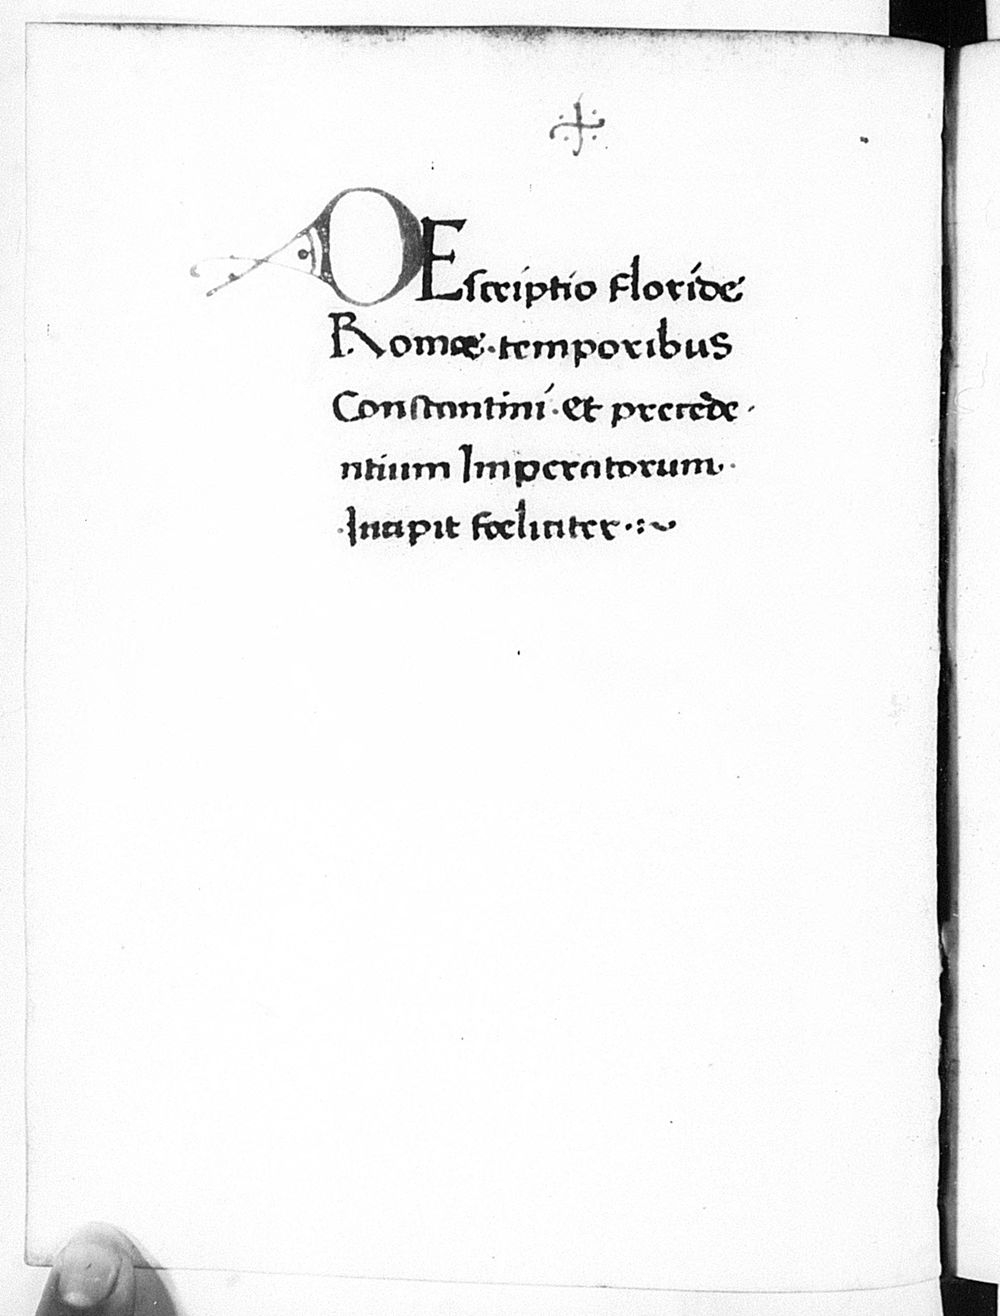 DEscriptio floride
Romæ·temporibus
Constantini·et precede
ntium Imperatorum·
·Incipit foeliciter·:~